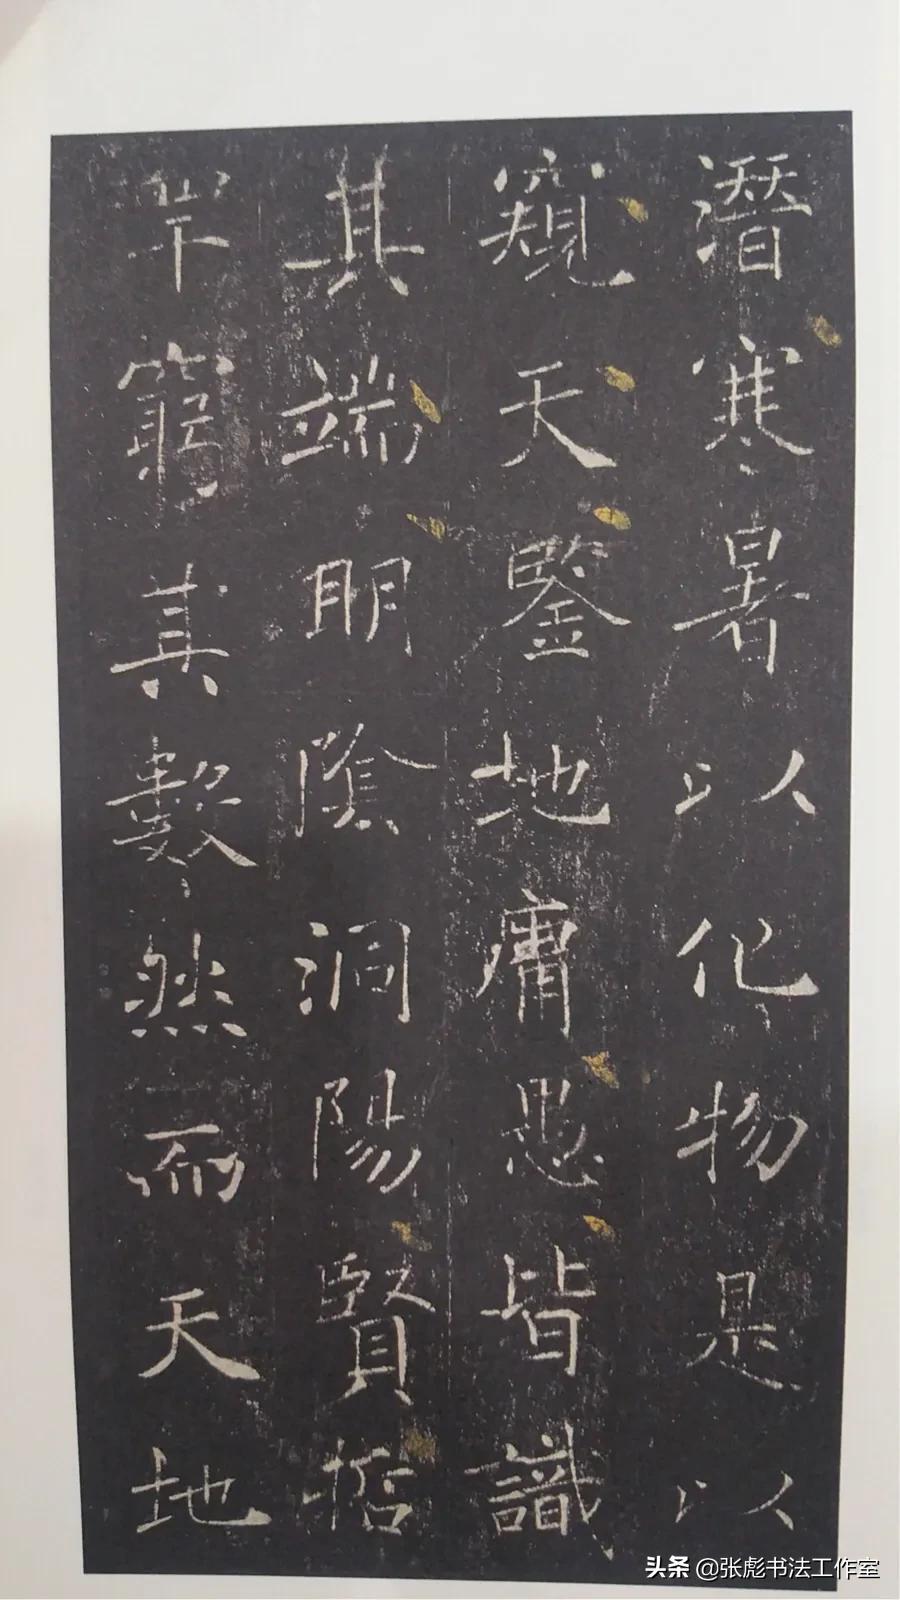 潛寒暑以化物是以
窺天鑒地庸愚皆識
其端明陰洞陽賢哲
罕窮其數然而天地
头条 @张彪书法工作室